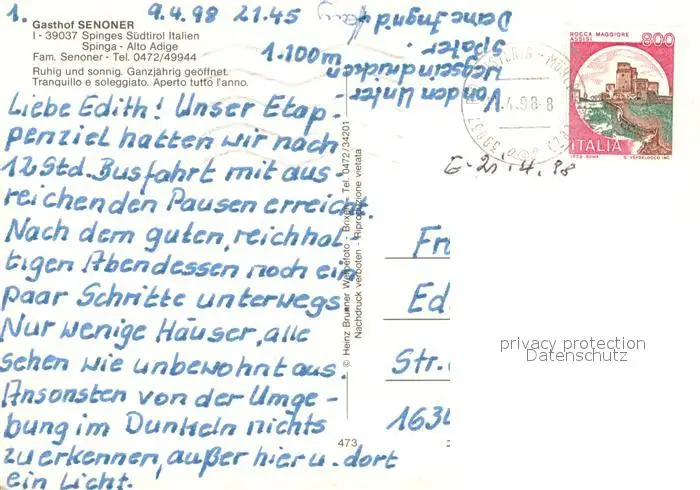 1.
9.4.98 21.45
Gasthof SENONER
I - 39037 Spinges Südtirol Italien
Spinga - Alto Adige
Fam. Senoner - Tel. 0472/49944
Ruhig und sonnig. Ganzjährig geöffnet.
Tranquillo e soleggiato. Aperto tutto l'anno.
1.100m
Liebe Edith! Unser Etap-
penziel hatten wir nach
12 Std. Busfahrt mit aus-
reichenden Pausen erreicht.
Nach dem guten, reichhal-
tigen Abendessen noch ein
paar Schritte unterwegs.
Nur wenige Häuser, alle
sehen wie unbewohnt aus.
Ansonsten von der Umge-
bung im Dunkeln nichts
zu erkennen, außer hier u. dort
ein Licht.
Von den Unter
wegseindrücken
später.
Deine Ingrid
© Heinz Brunner Werbefoto - Brixen - Tel. 0472/34201
Nachdruck verboten - Riproduzione vietata
473
ROCCA MAGGIORE
ASSISI
800
ITALIA
.4.98-8
39037
E-21.4.98
Fr
Ed
Str.
163
privacy protection
Datenschutz